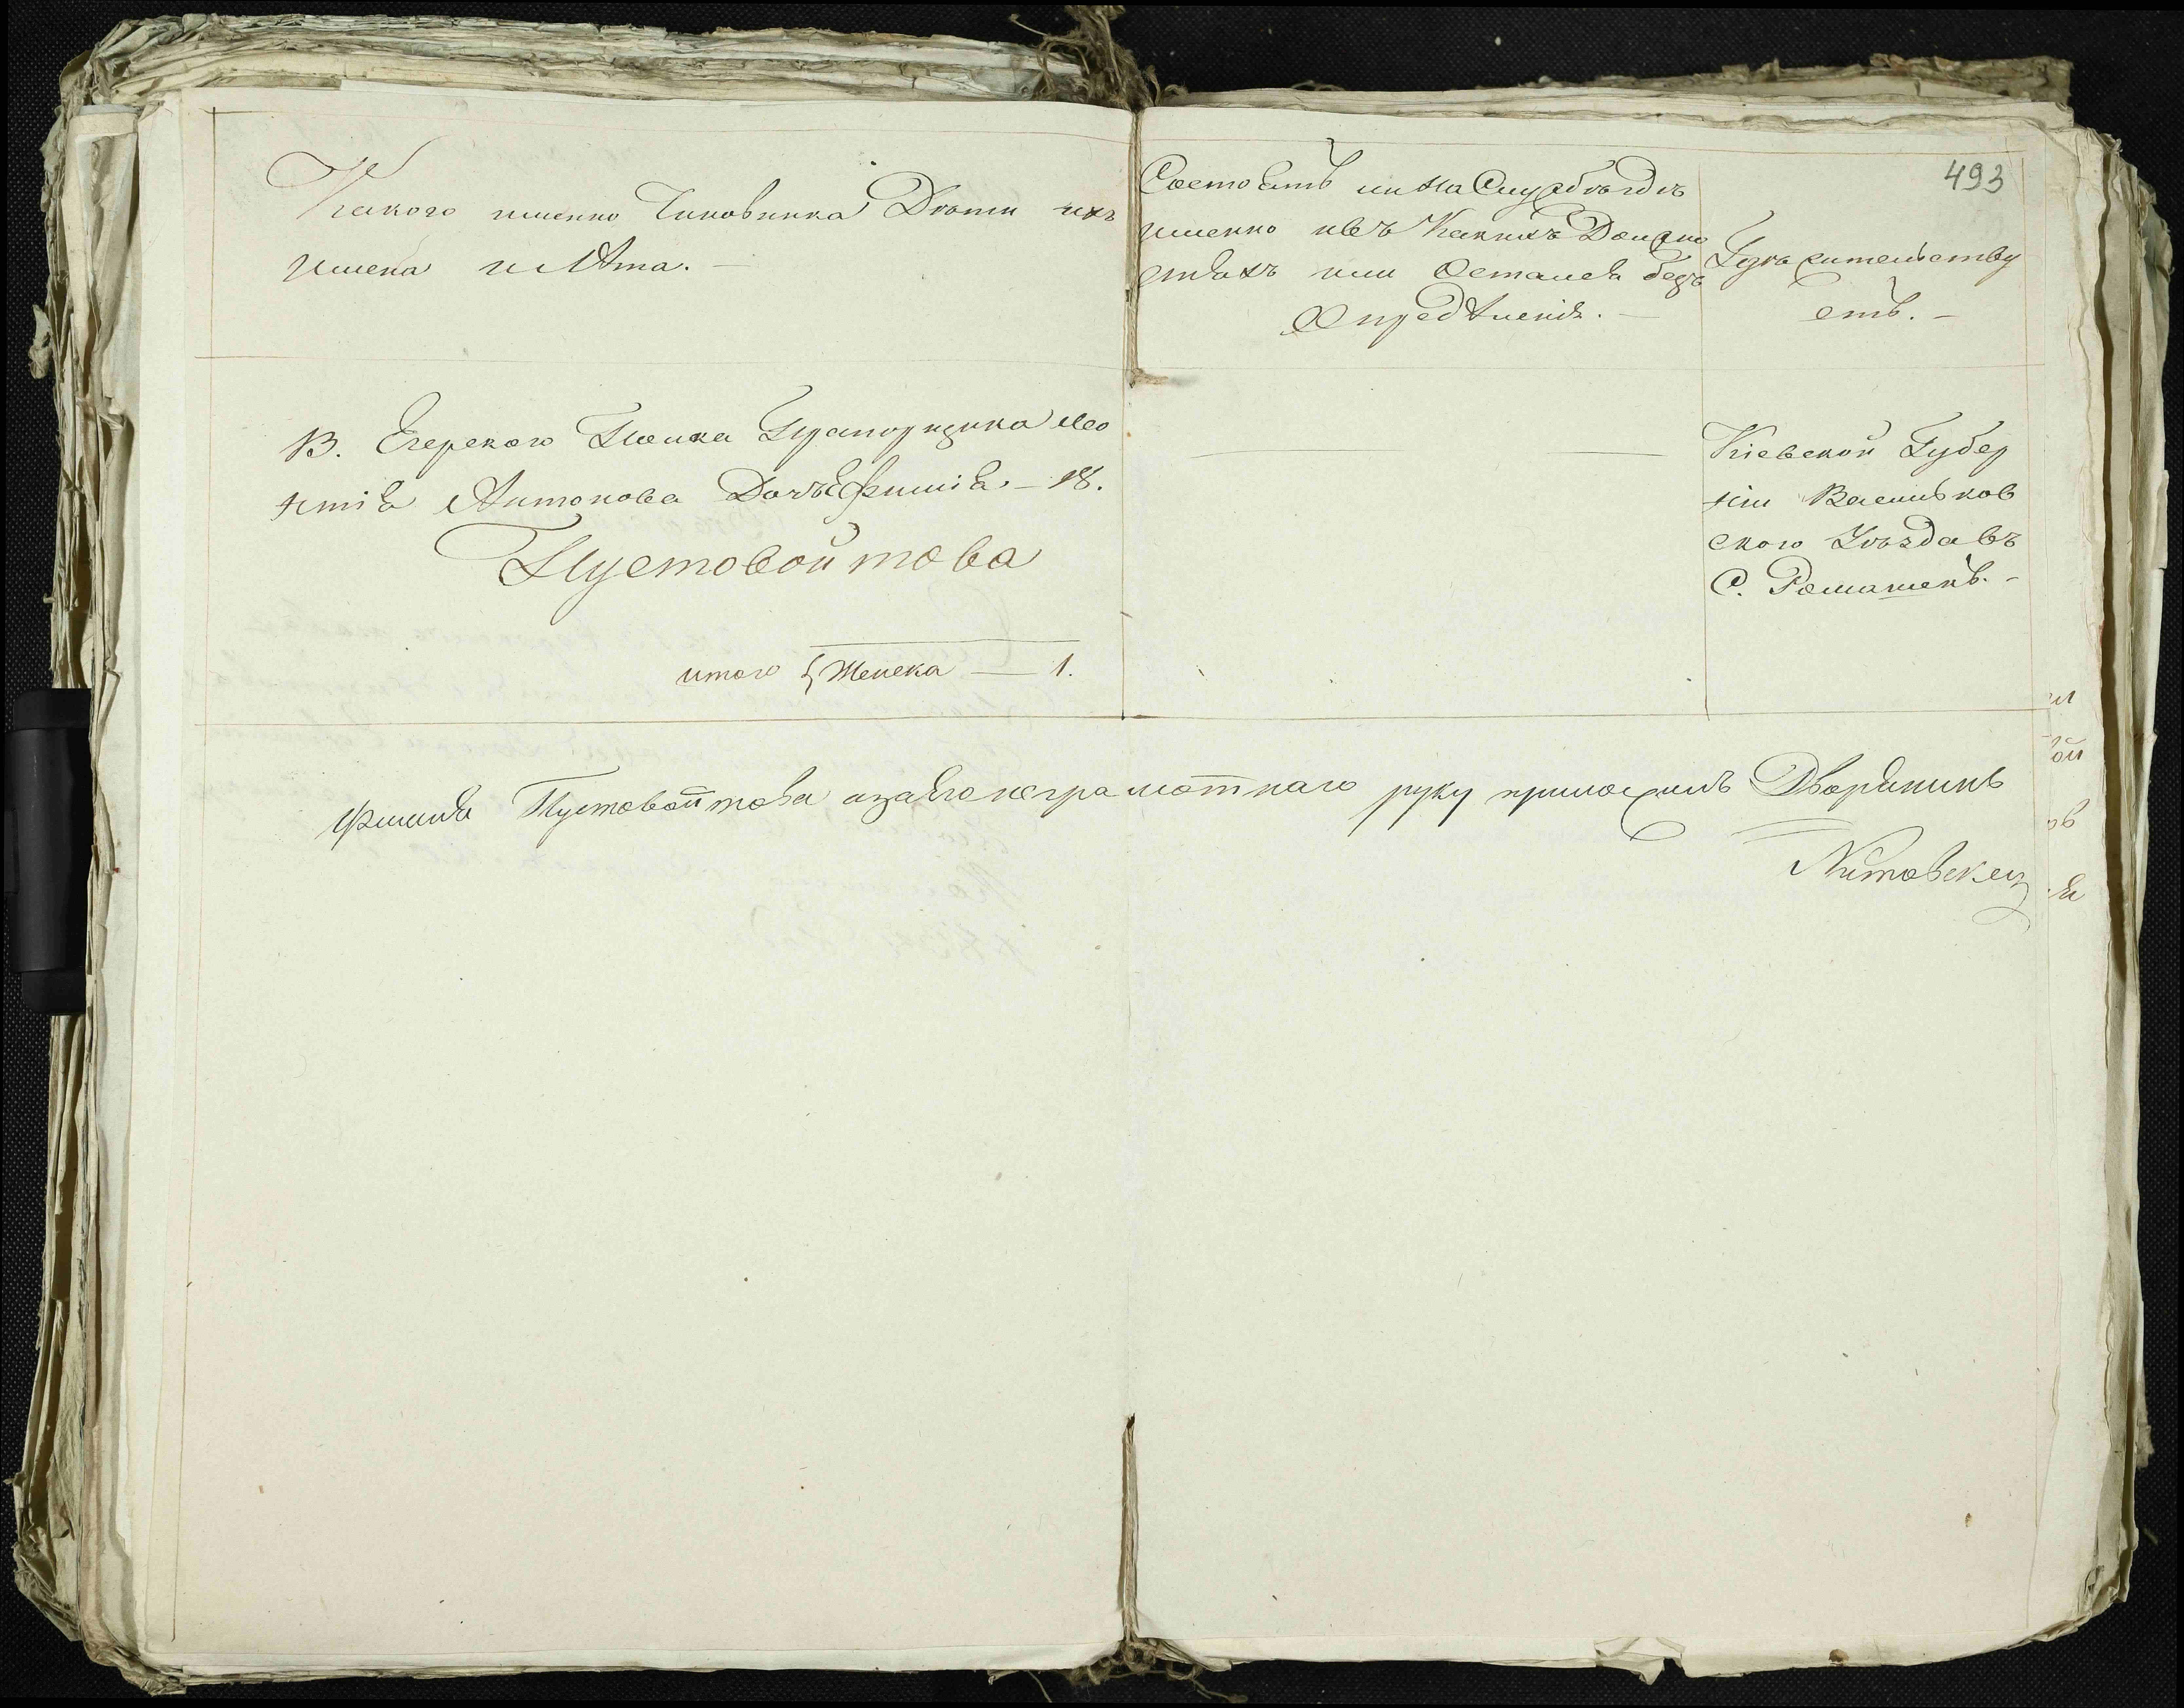 493
Какого именно Чиновника Дѣти ихъ
имена и лѣта. —
Состоятъ ли на Службѣ гдѣ
именно и въ Какихъ Должно
стяхъ или Остался безъ
Определенія. —
Гдѣ жительству
етъ. —
13. Егерского Полка Прапорщика Лео
нтія Антонова Дочь Юлiя — 18.
Пустовойтова
итого { Женска — 1.
Кіевской Губер
ніи Васильков
ского Уѣзда въ
С. Ромашекъ. —
Пустовойтова а за его неграмотнаго руку приложилъ Дворянинъ